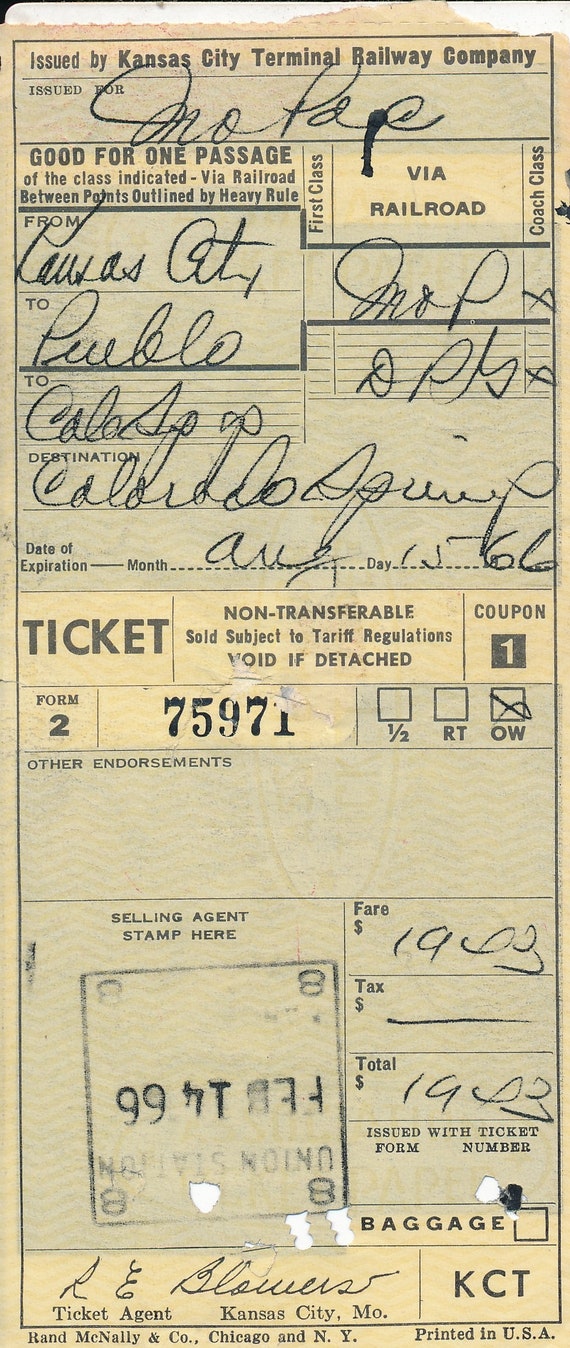 Issued by Kansas City Terminal Railway Company
ISSUED FOR
Mo Pac
GOOD FOR ONE PASSAGE
of the class indicated - Via Railroad
Between Points Outlined by Heavy Rule
First Class
VIA
RAILROAD
Coach Class
FROM
Kansas City
MoP X
TO
Pueblo
D R G X
TO
Colo Spgs
DESTINATION
Colorado Springs
Date of
Expiration — Month Aug Day 15 66
TICKET
NON-TRANSFERABLE
Sold Subject to Tariff Regulations
VOID IF DETACHED
COUPON
1
FORM
2
75971
½ RT OW
OTHER ENDORSEMENTS
SELLING AGENT
STAMP HERE
Fare
$ 19
Tax
$ —
Total
$ 19
8 8
FEB 14 66
UNION STATION
8 8
ISSUED WITH TICKET
FORM NUMBER
BAGGAGE
R E Blowers
Ticket Agent Kansas City, Mo.
KCT
Rand McNally & Co., Chicago and N. Y. Printed in U.S.A.